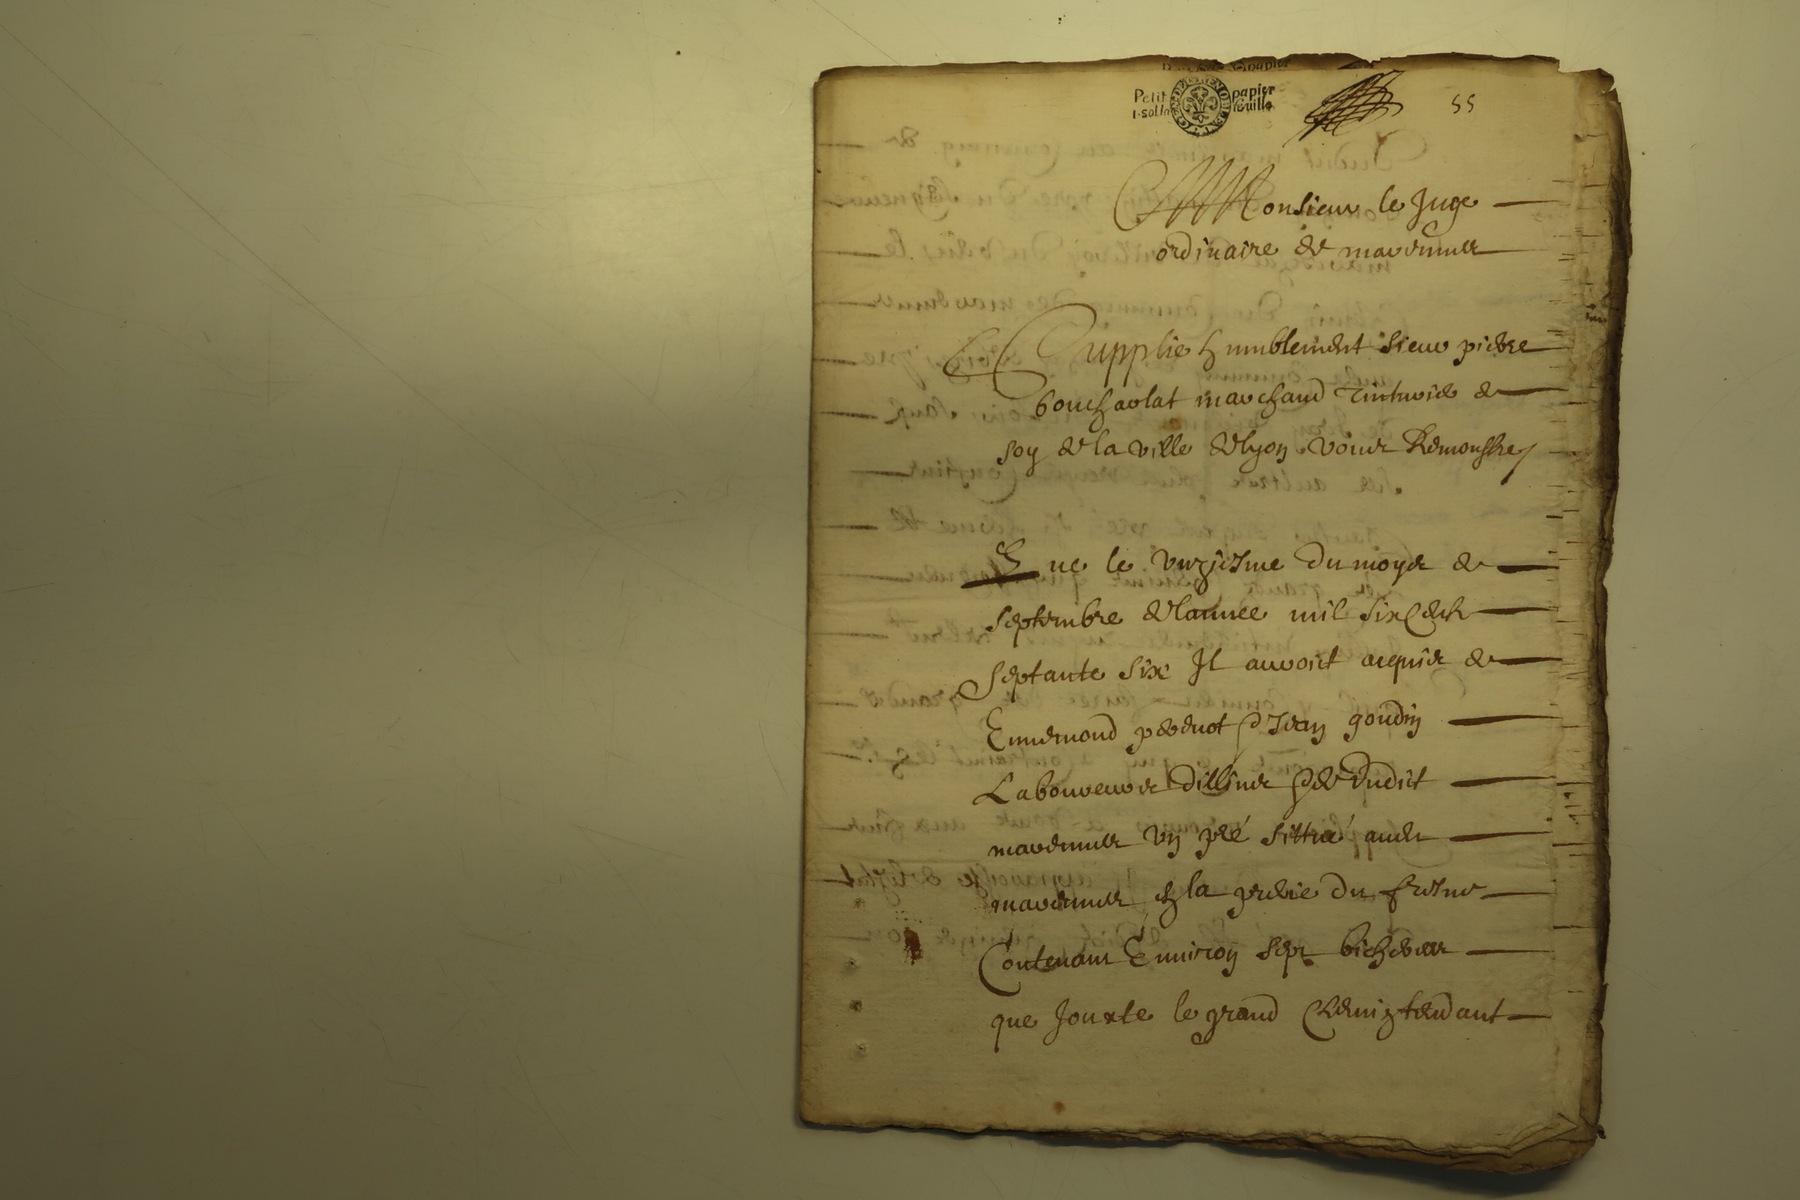 Petit papier
1. sol la feuille
55
Monsieur le Juge
ordinaire de marennes
Supplie humblement sieur pierre
boucharlat marchand Tinturier de
soy de la ville de lyon Vous Remonstre
Que le unziesme du moys de
septembre de lannee mil six cents
septante six Il auroit acquis de
Ennemond pevenot &Jean goudin
Laboureurs dillins & dudict
marennes Un pré sittué audt
marennes & la prerie du fresne
Contenant Enuiron sept bicherees
que Jouxte le grand Chemin tendant